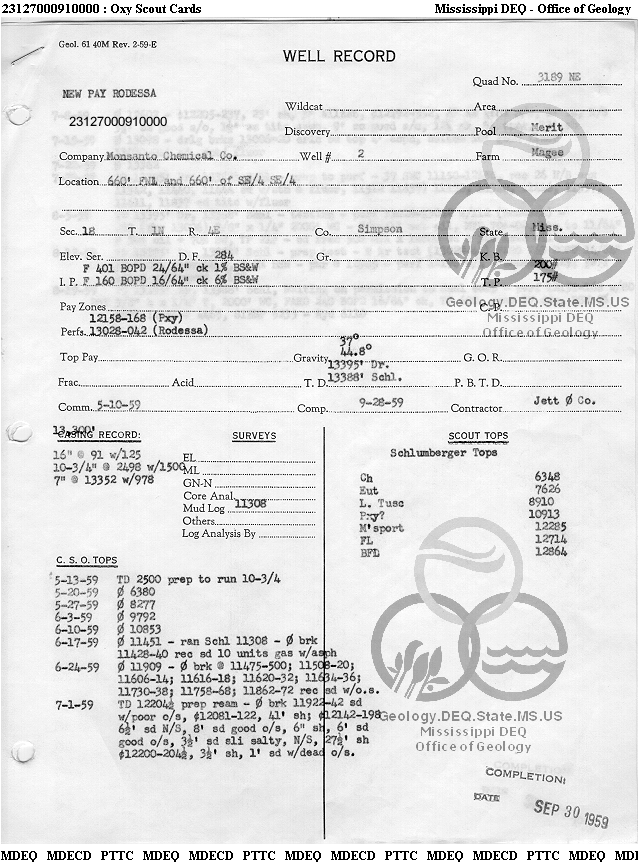 23127000910000 : Oxy Scout Cards
Mississippi DEQ - Office of Geology
Geol. 61 40M Rev. 2-59-E
WELL RECORD
Quad No. 3189 NE
NEW PAY RODESSA
Wildcat Area
23127000910000
Discovery Pool Merit
Company Monsanto Chemical Co. Well # 2 Farm Magee
Location 660' FNL and 660' of SE/4 SE/4
Sec. 18 T. 1N R. 4E Co. Simpson State Miss.
Elev. Ser. D. F. 284 Gr. K. B.
F 401 BOPD 24/64" ck 1% BS&W 200#
I. P. F 160 BOPD 16/64" ck 6% BS&W T. P. 175#
Geology.DEQ.State.MS.US
Mississippi DEQ
Office of Geology
Pay Zones C. P.
12158-168 (Pxy)
Perfs. 13028-042 (Rodessa)
37°
Top Pay Gravity 44.8° G. O. R.
13395' Dr.
Frac. Acid T. D. 13388' Schl. P. B. T. D.
Comm. 5-10-59 Comp. 9-28-59 Contractor Jett Ø Co.
13,300'
CASING RECORD:
16" @ 91 w/125
10-3/4" @ 2498 w/1500
7" @ 13352 w/978
SURVEYS
EL
ML
GN-N
Core Anal.
Mud Log 11308
Others
Log Analysis By
SCOUT TOPS
Schlumberger Tops
Ch 6348
Eut 7626
L. Tusc 8910
Pxy? 10913
M'sport 12285
FL 12714
BFD 12864
C. S. O. TOPS
5-13-59 TD 2500 prep to run 10-3/4
5-20-59 Ø 6380
5-27-59 Ø 8277
6-3-59 Ø 9792
6-10-59 Ø 10853
6-17-59 Ø 11451 - ran Schl 11308 - Ø brk
11428-40 rec sd 10 units gas w/asph
6-24-59 Ø 11909 - Ø brk @ 11475-500; 11508-20;
11606-14; 11616-18; 11620-32; 11634-36;
11730-38; 11758-68; 11862-72 rec sd w/o.s.
7-1-59 TD 12204½ prep ream - Ø brk 11922-42 sd
w/poor o/s, Ø12081-122, 41' sh; Ø12142-198
6½' sd N/S, 8' sd good o/s, 6" sh, 6' sd
good o/s, 3½' sd sli salty, N/S, 27½' sh
Ø12200-204½, 3½' sh, 1' sd w/dead o/s.
Geology.DEQ.State.MS.US
Mississippi DEQ
Office of Geology
COMPLETION:
DATE SEP 30 1959
MDEQ MDECD PTTC MDEQ MDECD PTTC MDEQ MDECD PTTC MDEQ MDECD PTTC MDEQ MDE